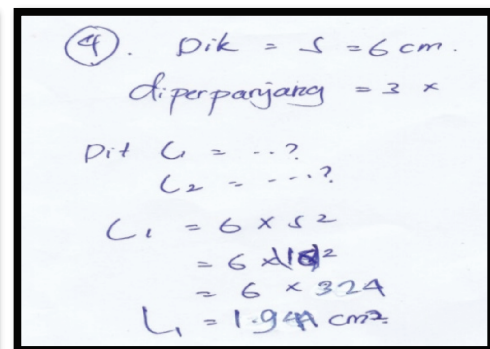 ④. Dik = s = 6 cm.
diperpanjang = 3 x
Dit L1 = ...?
L2 = ....?
L1 = 6 x s2
= 6 x 18 2
= 6 x 324
L1 = 1.944 cm2.